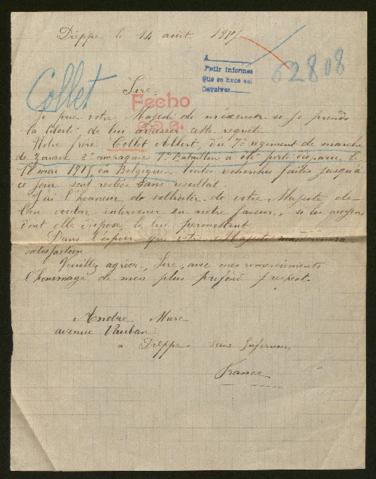 Dieppe le 14 août 1917
A
Pedir informes
que se hace sol
62808
Collet
Sire,
Fecho
Je prie votre Majesté de m'excuser si je prends
la liberté de lui adresser cette requête.
Notre frère Collet Albert, du 7e régiment de marche
de Zouave 2e compagnie 1er Bataillon a été porté disparu le
mai 1915 en Belgique. Toutes recherches faites jusqu'à
ce jour sont restées sans résultat.
J'ai l'honneur de solliciter de votre Majesté de
bien vouloir intervenir en notre faveur, si les moyens
dont elle dispose le lui permettent.
Dans l'espoir que votre Majesté
satisfaction
Veuillez agréer, Sire, avec mes remerciements
l'hommage de mon plus profond respect.
Andre Marc
avenue Vauban
à Dieppe Seine Inférieure
France